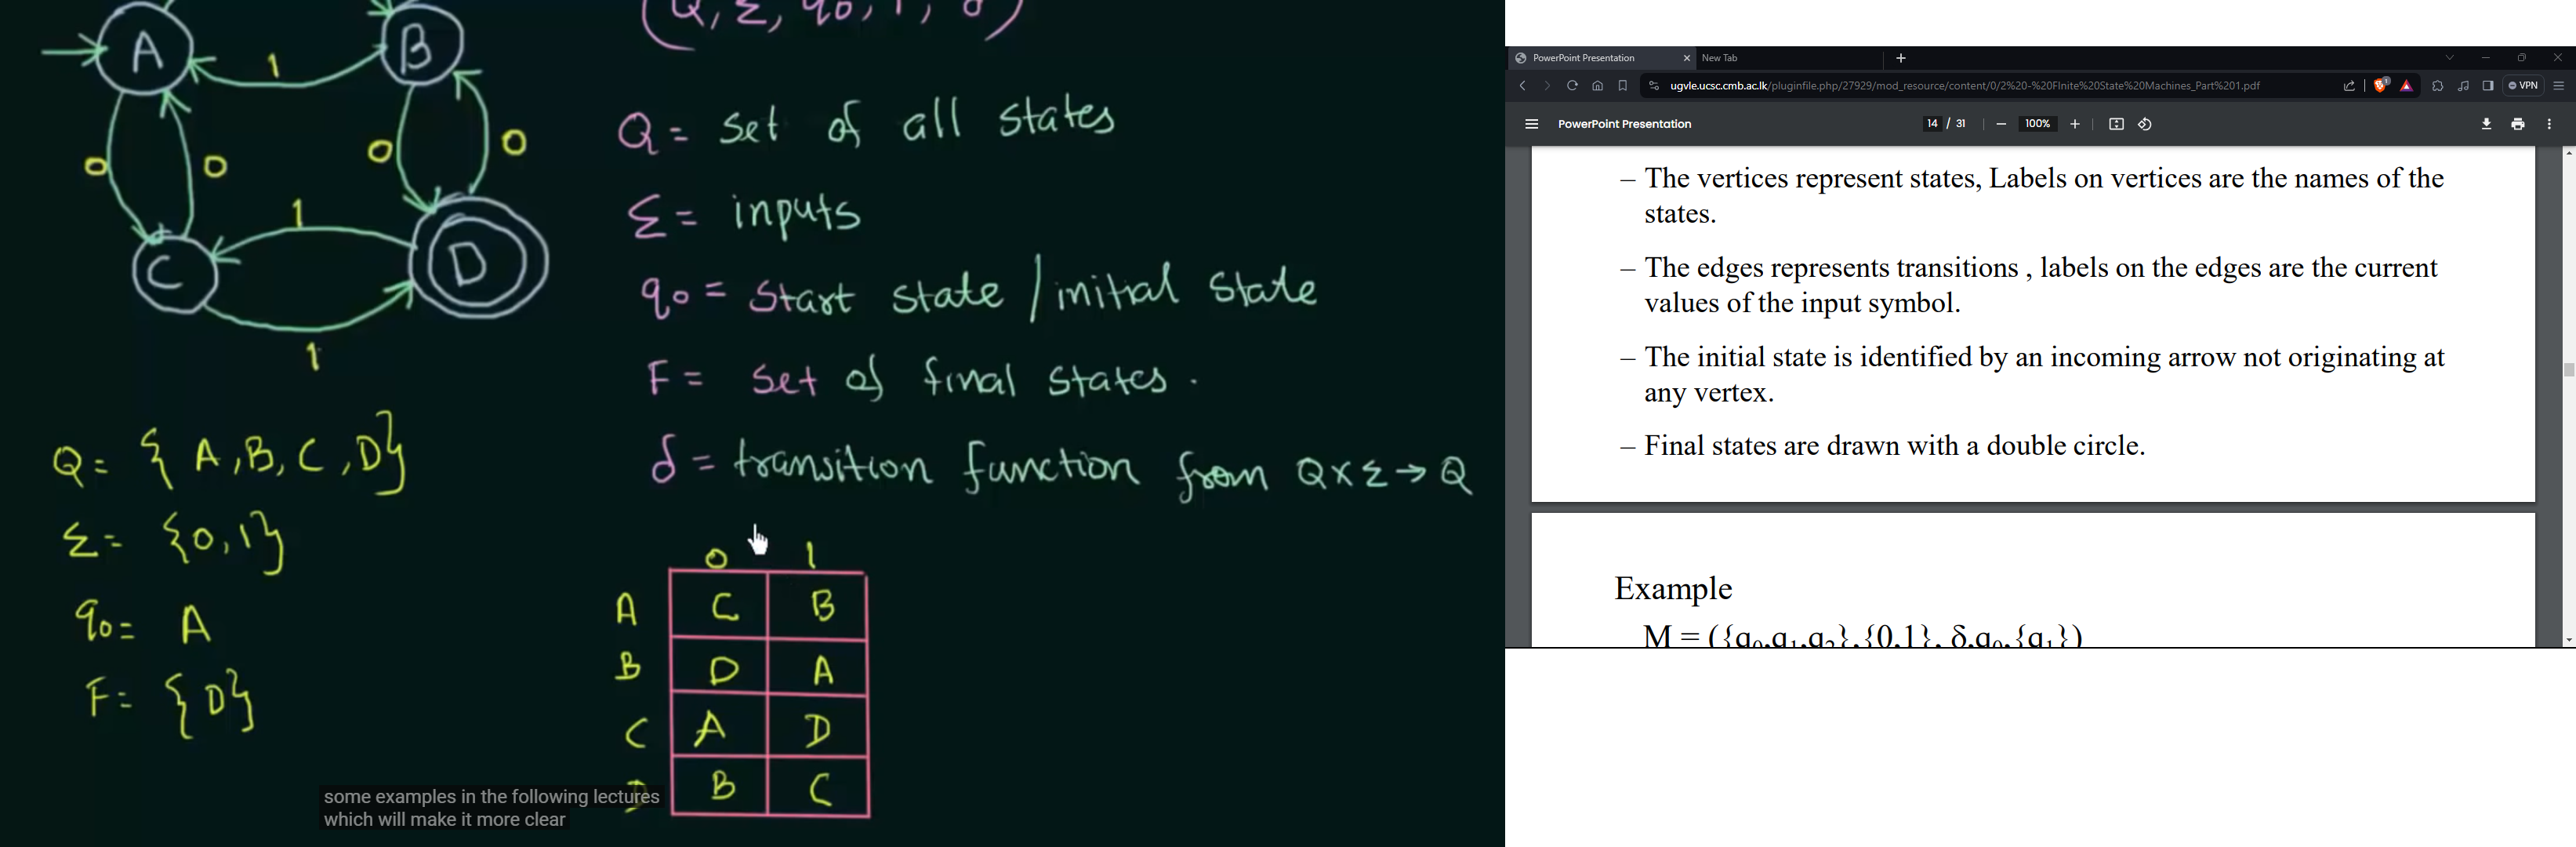 (Q, Σ, q0, F, δ)
A
B
1
0
0
0
0
1
C
D
1
Q = set of all states
Σ = inputs
q0 = start state / initial state
F = set of final states .
δ = transition function from Q×Σ → Q
Q = { A , B , C , D }
Σ = {0, 1}
q0 = A
F = { D }
0 1
A C B
B D A
C A D
D B C
some examples in the following lectures
which will make it more clear
PowerPoint Presentation
New Tab
ugvle.ucsc.cmb.ac.lk/pluginfile.php/27929/mod_resource/content/0/2%20-%20FInite%20State%20Machines_Part%201.pdf
1
VPN
PowerPoint Presentation
14 / 31
100%
– The vertices represent states, Labels on vertices are the names of the
states.
– The edges represents transitions , labels on the edges are the current
values of the input symbol.
– The initial state is identified by an incoming arrow not originating at
any vertex.
– Final states are drawn with a double circle.
Example
M = ({q0,q1,q2},{0,1}, δ,q0,{q1})